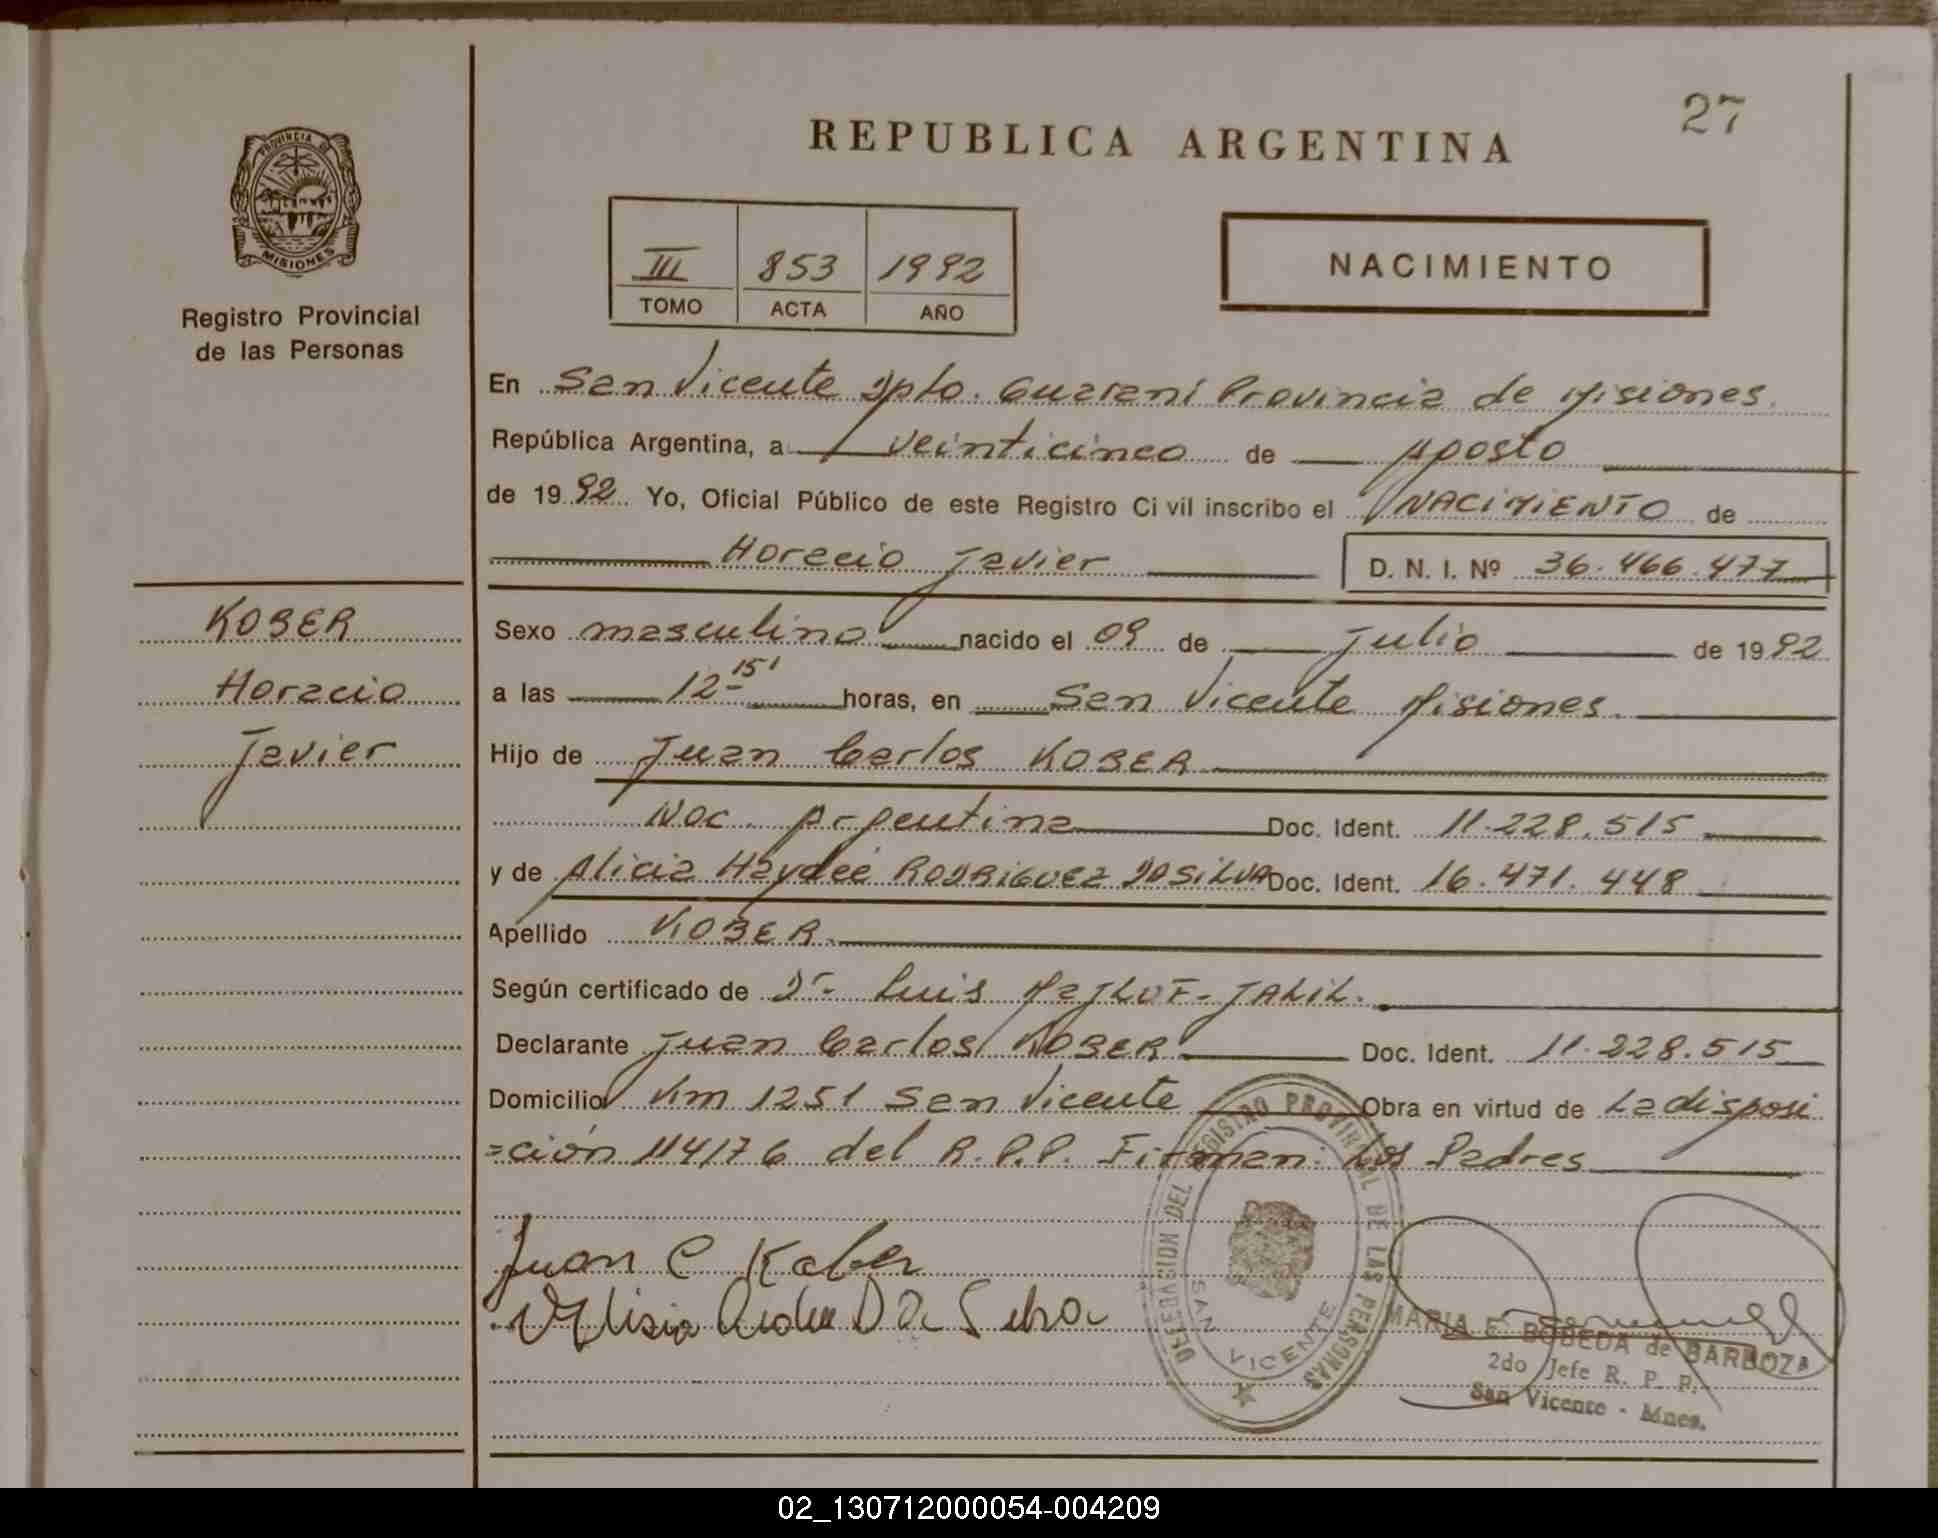 27
REPUBLICA ARGENTINA
PROVINCIA DE
MISIONES
Registro Provincial
de las Personas
III 853 1992
TOMO ACTA AÑO
NACIMIENTO
En San Vicente Dpto. Guaraní Provincia de Misiones.
República Argentina, a veinticinco de Agosto
de 1992 Yo, Oficial Público de este Registro Civil inscribo el NACIMIENTO de
Horacio Javier D. N. I. Nº 36.466.477
KOBER
Horacio
Javier
Sexo masculino nacido el 09 de Julio de 1992
a las 12-15' horas, en San Vicente Misiones.
Hijo de Juan Carlos KOBER
Nac. Argentina Doc. Ident. 11.228.515
y de Alicia Haydeé RODRIGUEZ DA SILVA Doc. Ident. 16.471.448
Apellido KOBER.
Según certificado de Dr- Luis JALIL.
Declarante Juan Carlos KOBER Doc. Ident. 11.228.515
Domicilio Km 1251 San Vicente Obra en virtud de La disposi
=ción 114/76 del R.P.P. Firman: Los Padres
Juan C Kober
Da Silva
DELEGACION DEL REGISTRO PROVINCIAL DE LAS PERSONAS
SAN VICENTE
MARIA E. BOBEDA de BARBOZA
2do Jefe R. P. P.
San Vicente - Mnes.
02_130712000054-004209